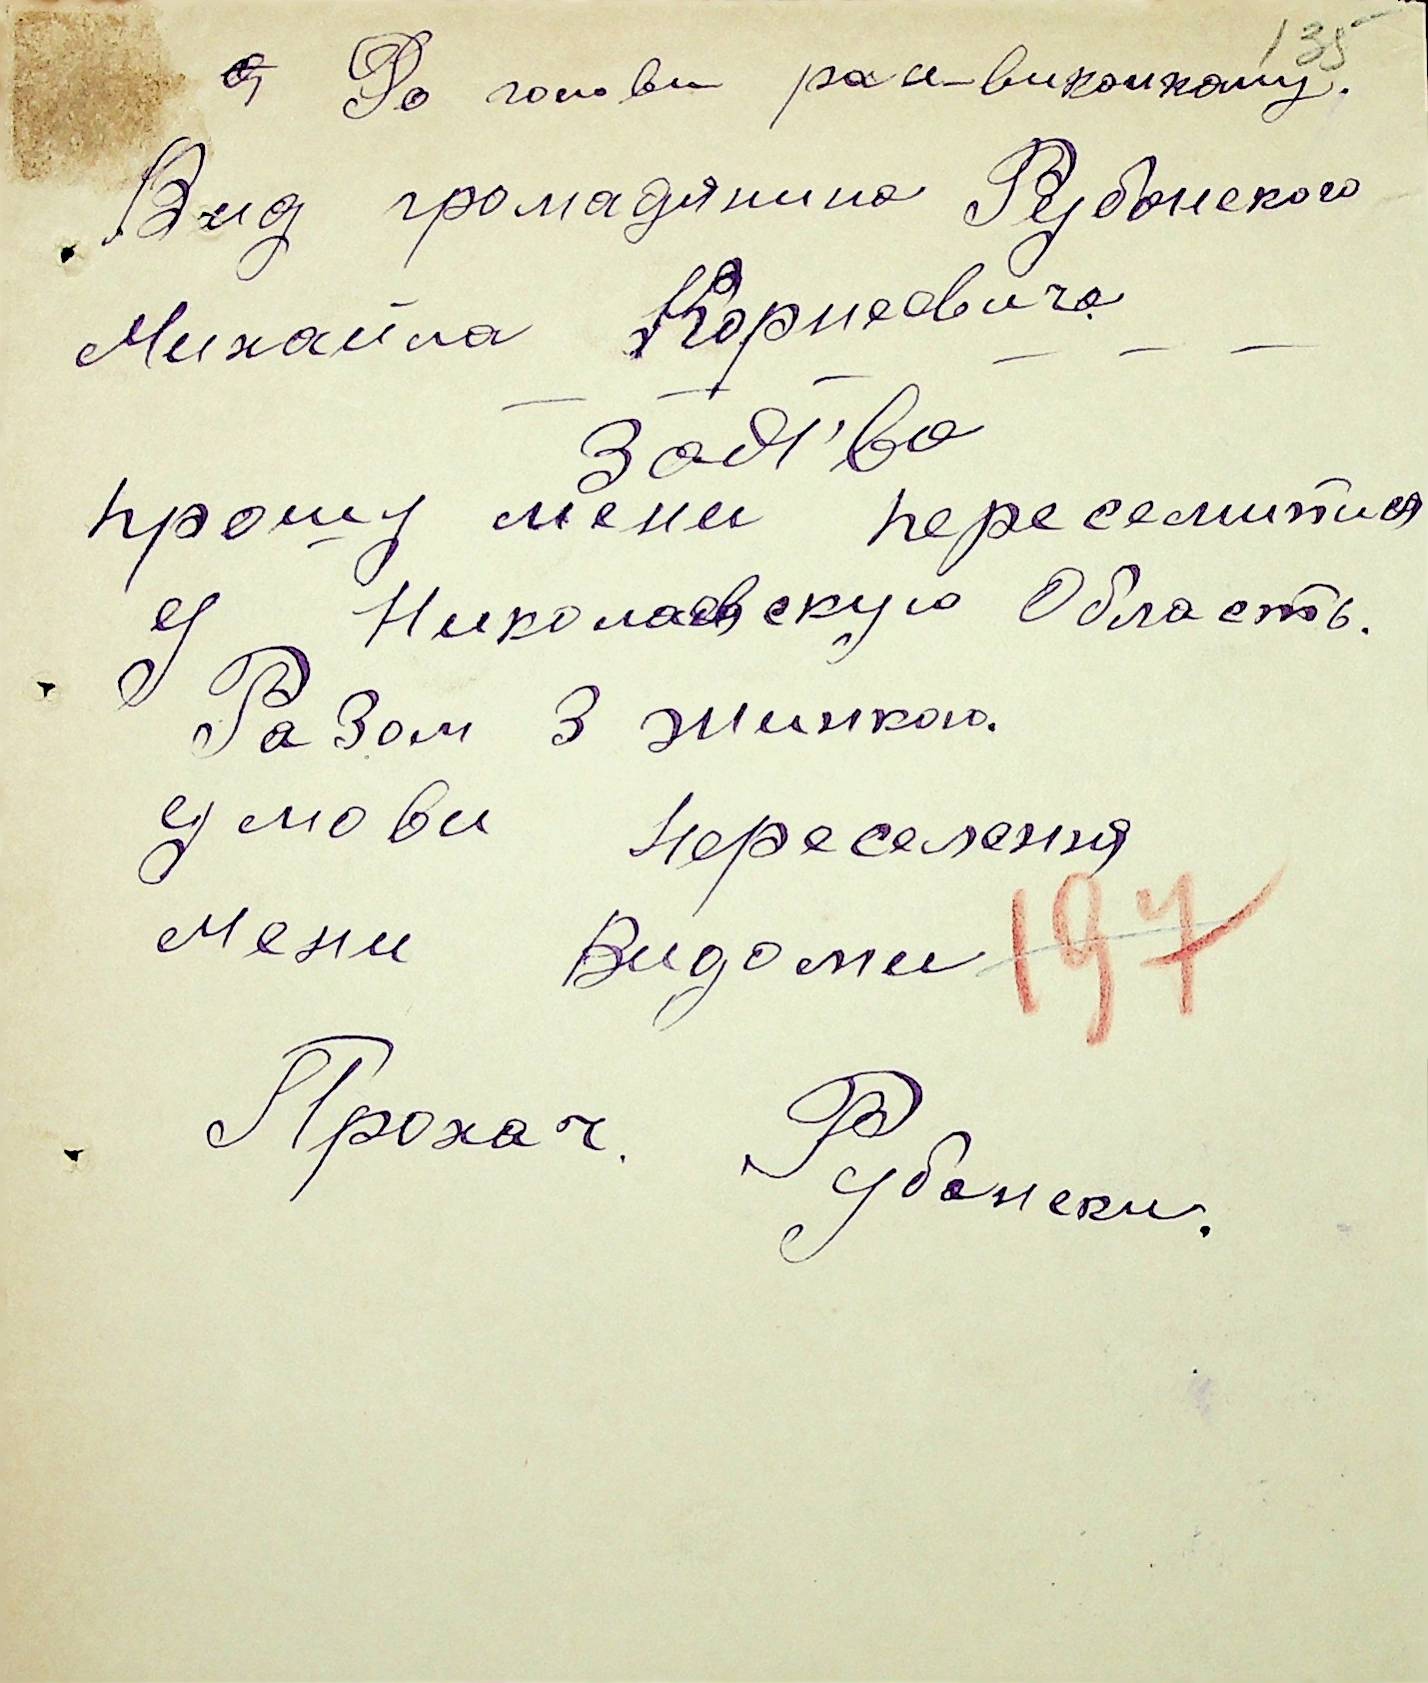 135
До голови рай-виконкому.
Вид громадянина Рубонского
Михайла Корнеевича
Задя'ва
прошу мени переселитися
у Николаевскую Область.
Разом з жинкою.
умови переселення
мени видоми
197
Прохач. Рубонски.